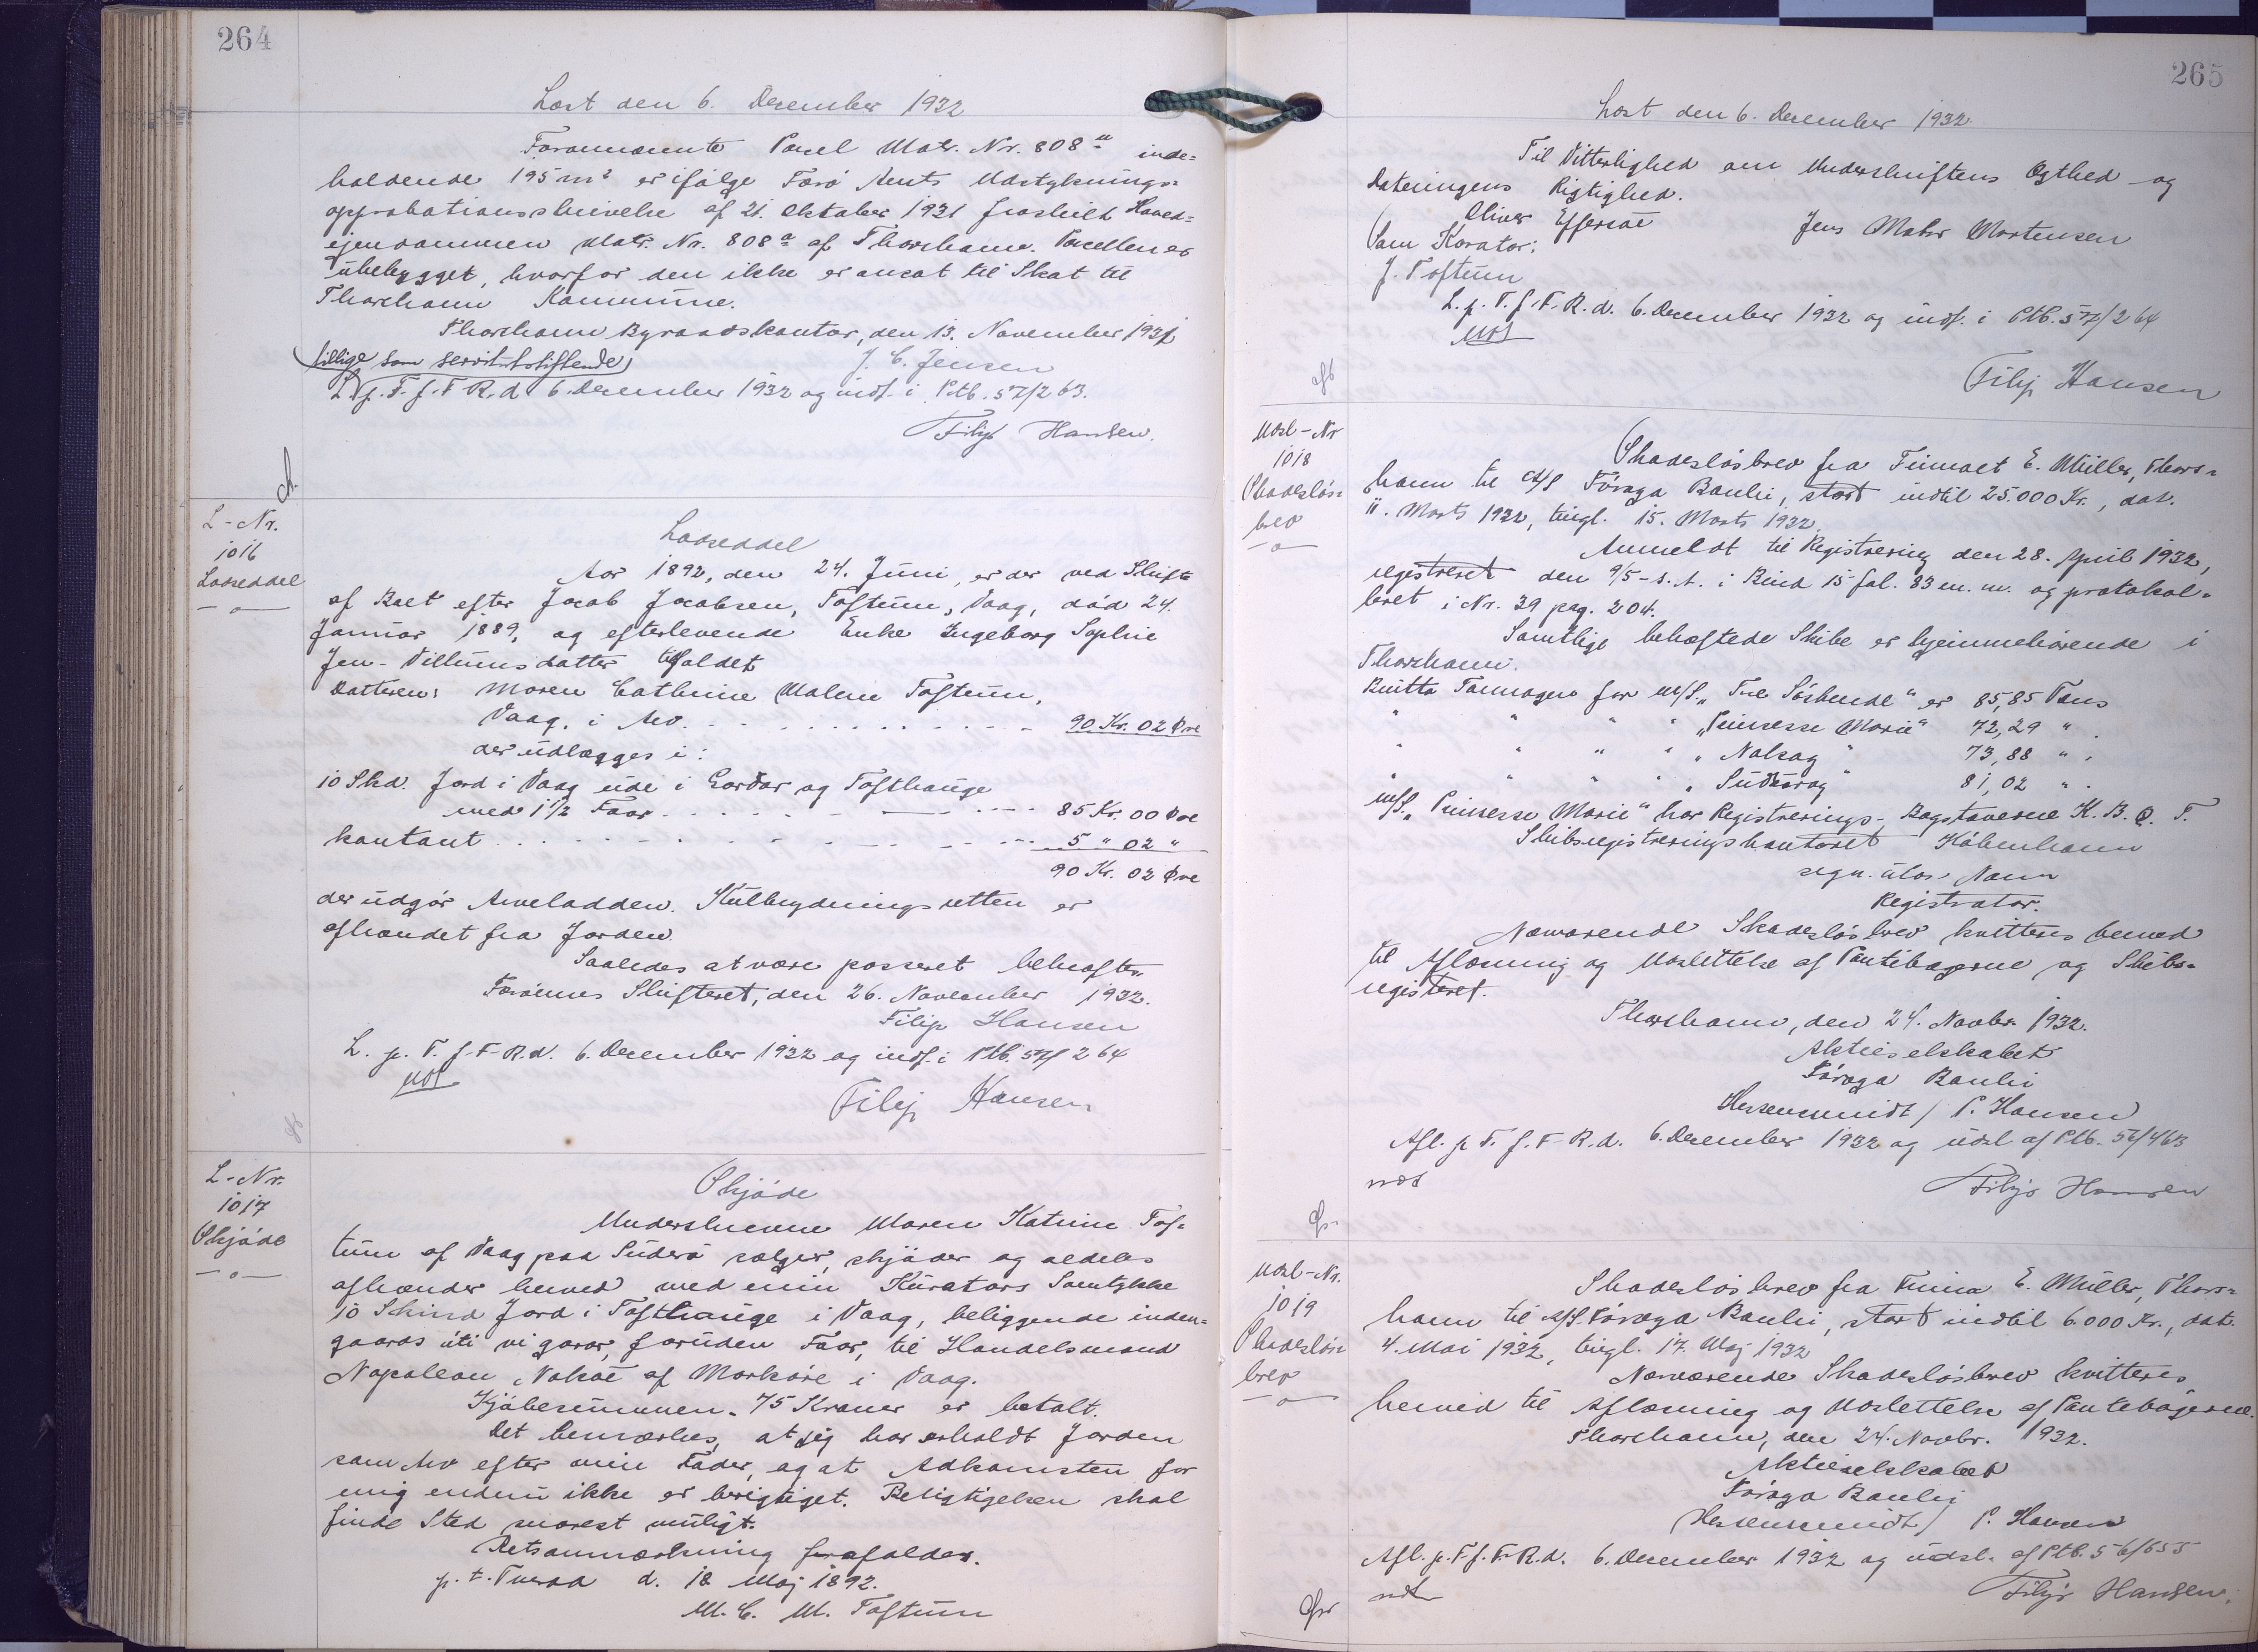 264
Læst den 6. December 1932
Forannævnte Parcel Matr. Nr. 808 inde=
holdende 195 m² er ifølge Færø Amts Udstyknings=
approbationsskrivelse af 21. Oktober 1931 fraskilt Hoved=
ejendommen Matr. Nr. 808a af Thorshavn. Parcellen er
ubebygget, hvorfor den ikke er ansat til Skat til
Thorshavn Kommune.
Thorshavn Byraadskontor, den 13. November 1931
(tillige som servitutstiftende) J. C. Jensen
L. p. T. f. F. R. d. 6. December 1932 og indf. i Ptb. 57/263.
Filip Hansen.
L-Nr.
1016
Lodseddel
Lodseddel
Aar 1892, den 24. Juni, er der ved Skifte
af Boet efter Jacob Jacobsen, Toftum, Vaag, død 24.
Januar 1889, og efterlevende Enke Ingeborg Sophie
Jen-Villumsdatter tilfaldet
Datteren: Maren Cathrine Malene Toftum,
Vaag, i Arv 90 Kr. 02 Øre
der udlægges i:
10 Skd. Jord i Vaag ude i Gordar og Tofthauge
med 1½ Faar 85 Kr. 00 Øre
kontant 5 " 02 "
90 Kr. 02 Øre
der udgør Arvelodden. Kulbrydningsretten er
afhændet fra Jorden.
Saaledes at være passeret bekræfter
Færøernes Skifteret, den 26. November 1932.
Filip Hansen
L. p. T. f. F. R. d. 6. December 1932 og indf. i Ptb. 57/264
Filip Hansen
L-Nr.
1017
Skjøde
Skjøde
Underskrevne Maren Katrine Tof=
tum af Vaag paa Suderø sælger, skjøder og aldeles
afhænder herved med min Kurators Samtykke
10 Skind Jord i Tofthauge i Vaag, beliggende inden=
gaards úti vi garar, foruden Faar, til Handelsmand
Napoleon Nolsøe af Morkøre i Vaag.
Kjøbesummen 75 Kroner er betalt.
Det bemærkes, at jeg har erholdt Jorden
som Arv efter min Fader, og at Adkomsten for
mig endnu ikke er berigtiget. Berigtigelsen skal
finde Sted snarest muligt.
Retsanmærkning frafalder.
p. t. Tveraa d. 18 Maj 1892.
M. C. M. Toftum
265
Læst den 6. December 1932.
Til Vitterlighed om Underskriftens Ægthed og
Dateringens Rigtighed.
Oliver Effersøe Jens Mohr Mortensen
Som Kurator:
J. Toftum
L. p. T. f. F. R. d. 6. December 1932 og indf. i Ptb. 57/264
Filip Hansen
Udsl-Nr
1018
Skadesløs=
brev
Skadesløsbrev fra Finna E. Müller, Thors=
havn til A/S Føroya Banki, stort indtil 25.000 Kr., dat.
11. Marts 1932, tingl. 15. Marts 1932.
Anmeldt til Registrering den 28. April 1932,
registreret den 9/5 - s. A. i Bind 15 fol. 83 m. m. og protokol=
leret i Nr. 39 pag. 204.
Samtlige behæftede Skibe er hjemmehørende i
Thorshavn.
Brutto Tonnagen for M/S. "Tre Søskende" er 85,85 Tons
" " " " "Prinsesse Marie" 72,29 "
" " " " "Nolsoy" 73,88 "
" " " " "Suduroy" 81,02 "
M/S. "Prinsesse Marie" har Registrerings-Bogstaverne K. B. Q. T.
Skibsregistreringskontoret København
sign. ulæs. Navn
Registrator.
Nærværende Skadesløsbrev kvitteres herved
til Aflæsning og Udslettelse af Pantebøgerne og Skibs=
registeret.
Thorshavn, den 24. Novbr. 1932.
Aktieselskabet
Føroya Banki
Hessenschmidt / P. Hansen
Afl. p T. f. F. R. d. 6. December 1932 og udsl af Ptb. 56/463
Filip Hansen
Udsl-Nr.
1019
Skadesløs=
brev
Skadesløsbrev fra Finna E. Müller, Thors=
havn til A/S. Føroya Banki, stort indtil 6.000 Kr., dat.
4. Mai 1932, tingl. 17. Maj 1932
Nærværende Skadesløsbrev kvitteres
herved til Aflæsning og Udslettelse af Pantebøgerne.
Thorshavn, den 24. Novbr. 1932.
Aktieselskabet
Føroya Banki
Hessenschmidt / P. Hansen
Afl. p. T. f. F. R. d. 6. December 1932 og udsl. af Ptb. 56/655
Filip Hansen.